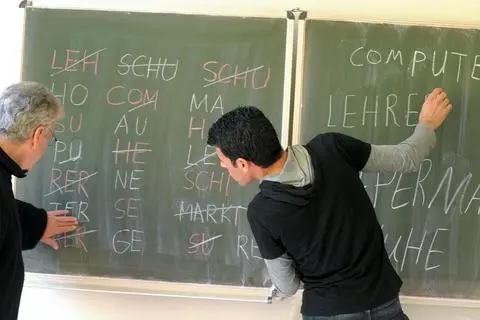 LEH SCHU SCHU
HO COM MA
SU AU H
PU HE
RER NE SCHI
TER SE MARKT
GE SU RE
COMPUTE
LEHRE
PERMA
UHE